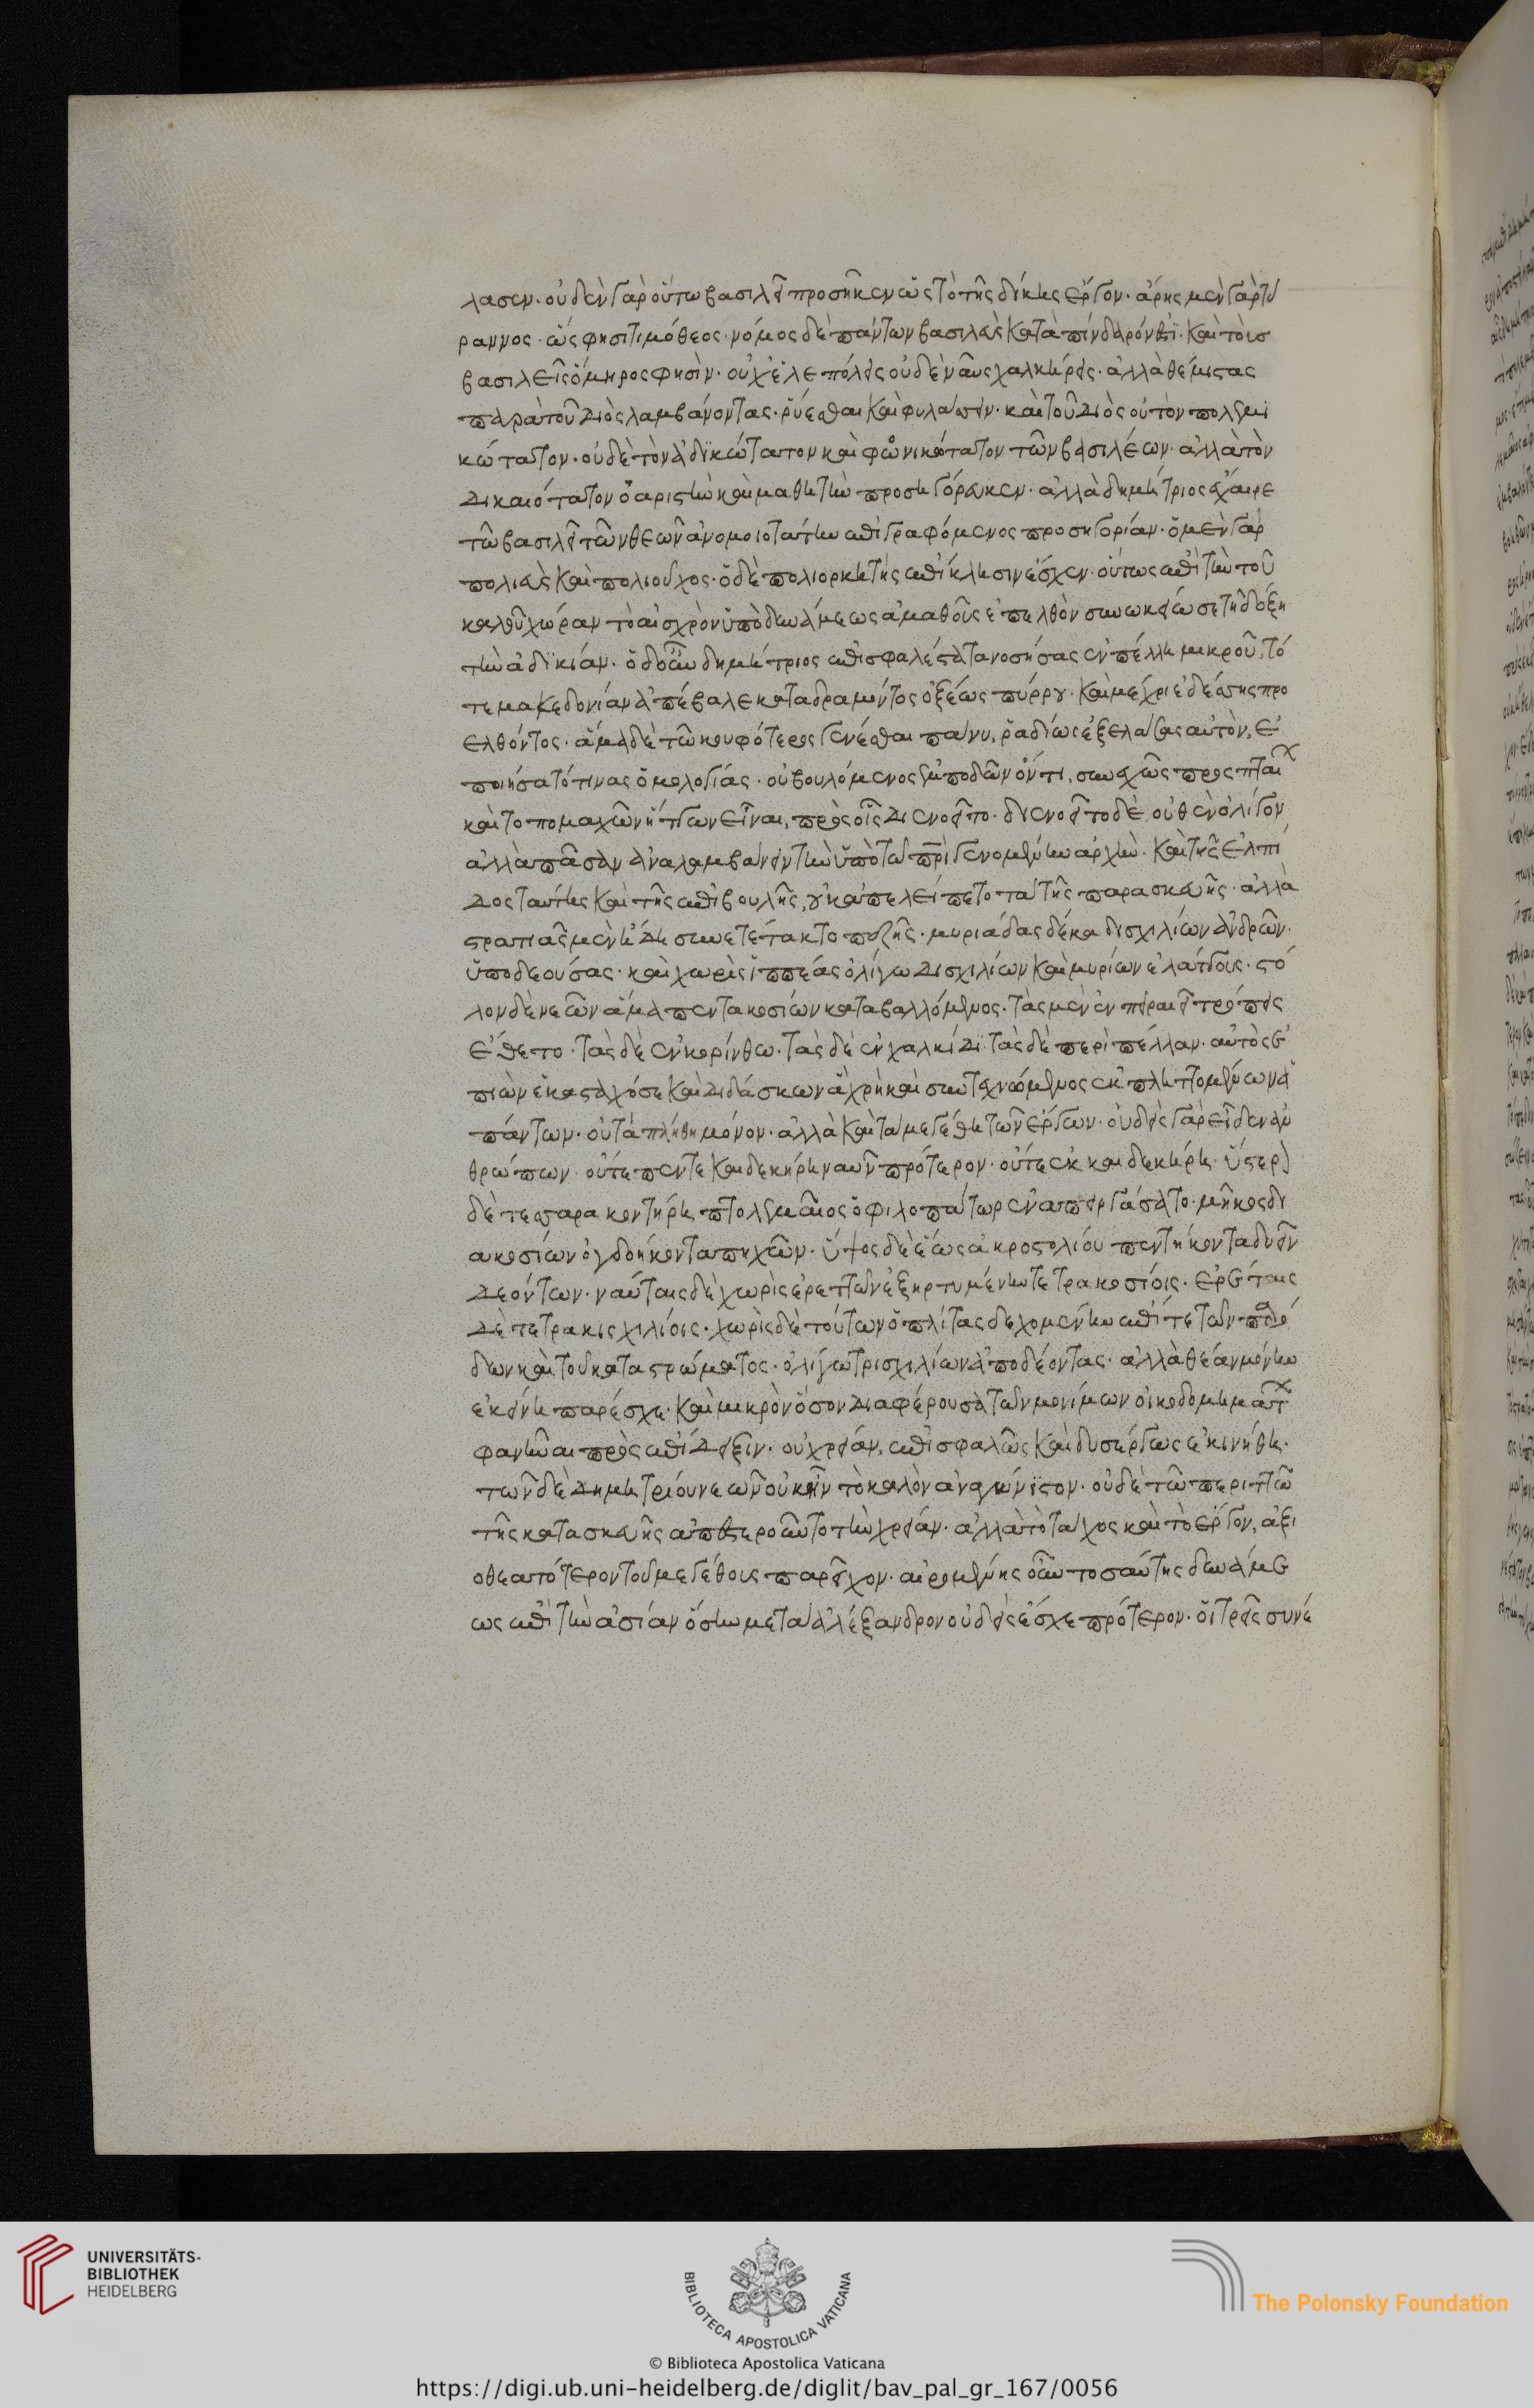 λασεν· οὐδὲν γὰρ οὕτω βασιλεῖ προσῆκεν ὡς τὸ τῆς δίκης ἔργον· ἄρης μὲν γὰρ τύ
ραννος· ὥς φησι τιμόθεος· νόμος δὲ πάντων βασιλεὺς κατὰ πίνδαρόν ἐστι· καὶ τοὺς
βασιλεῖς ὅμηρος φησὶν· οὐχ ἑλεπόλεις οὐδὲ ναῦς χαλκήρεις· ἀλλὰ θέμιστας
παρὰ τοῦ Διὸς λαμβάνοντας· ῥύεσθαι καὶ φυλάσσειν· καὶ τοῦ Διὸς οὐ τὸν πολεμι
κώτατον· οὐδὲ τὸν ἀδικώτατον καὶ φονικώτατον τῶν βασιλέων· ἀλλὰ τὸν
δικαιότατον ὀαριστὴν καὶ μαθητὴν προσηγόρευκεν· ἀλλὰ δημήτριος ἔχαιρε
τῶ βασιλεῖ τῶν θεῶν ἀνομοιοτάτην ἐπιγραφόμενος προσηγορίαν· ὁ μὲν γὰρ
πολιεὺς καὶ πολιοῦχος· ὁ δὲ πολιορκητὴς ἐπίκλησιν ἔσχεν· οὕτως ἐπὶ τὴν τοῦ
καλοῦ χώραν τὸ αἰσχρὸν ὑπὸ δυνάμεως ἀμαθοῦς ἐπελθὸν συνωκείωσε τῆ δόξη
τὴν ἀδικίαν· ὁ δ' οὖν δημήτριος ἐπισφαλέστατα νοσήσας ἐν πέλλη μικροῦ, τό
τε μακεδονίαν ἀπέβαλε καταδραμόντος ὀξέως πύρρου· καὶ μέχρι ἐδέσσης προ
ελθόντος· ἅμα δὲ τῶ κουφότερος γενέσθαι πάνυ, ῥαδίως ἐξελάσας αὐτὸν, ἐ
ποιήσατό τινας ὁμολογίας· οὐ βουλόμενος ἐμποδὼν ὄντι, συνεχῶς προσπταί
καὶ τοπομαχῶν ἥττων εἶναι, πρὸς οἷς διενοεῖτο· διενοεῖτο δὲ οὐθὲν ὀλίγον
ἀλλὰ πᾶσαν ἀναλαμβάνειν τὴν ὑπὸ τῶ πρὶ γενομένην ἀρχὴν· καὶ τῆς ἐλπί
δος ταύτης καὶ τῆς ἐπιβουλῆς, οὐκ ἀπελείπετο τὰ τῆς παρασκευῆς· ἀλλὰ
στρατιᾶς μὲν ἤδη συνετέτακτο πεζῆς· μυριάδας δέκα δισχιλίων ἀνδρῶν·
ὑποδεούσας· καὶ χωρὶς ἱππέας ὀλίγω δισχιλίων καὶ μυρίων ἐλάττους· στό
λον δὲ νεῶν ἅμα πεντακοσίων καταβαλλόμενος· τὰς μὲν ἐν πειραιεῖ τρόπεις
ἔθετο· τὰς δὲ ἐν κορίνθω· τὰς δὲ ἐν χαλκίδι τὰς δὲ περὶ πέλλαν· αὐτὸς ἐ
πιὼν ἑκασταχόσε καὶ διδάσκων ἃ χρὴ καὶ συντεχνώμενος ἐκπληττομένων ἁ
πάντων· οὐ τὰ πλήθη μόνον· ἀλλὰ καὶ τὰ μεγέθη τῶν ἔργων· οὐδεὶς γὰρ εἶδεν ἀν
θρώπων· οὔτε πεντεκαιδεκήρη ναῦν πρότερον· οὔτε ἑκκαιδεκήρη· ὕστερον
δὲ τεσσαρακοντήρη πτολεμαῖος ὁ φιλοπάτωρ ἐναπειργάσατο· μῆκος δι
ακοσίων ὀγδοήκοντα πηχῶν· ὕψος δὲ ἕως ἀκροστολίου πεντήκοντα δυεῖν
δεόντων· ναύταις δὲ χωρὶς ἐρετῶν ἐξηρτυμένην τετρακοσίοις· ἐρέταις
δὲ τετρακισχιλίοις· χωρὶς δὲ τούτων ὁπλίτας δεχομένην ἐπί τε τῶν παρό
δων καὶ τοῦ καταστρώματος· ὀλίγω τρισχιλίων ἀποδέοντας· ἀλλὰ θέαν μόνην
ἐκείνη παρέσχε· καὶ μικρὸν ὅσον διαφέρουσα τῶν μονίμων οἰκοδομημάτ
φανῆναι πρὸς ἐπίδειξιν· οὐ χρείαν, ἐπισφαλῶς καὶ δυσέργως ἐκινήθη·
τῶν δὲ δημητρίου νεῶν οὐκ ἦν τὸ καλὸν ἀναγώνιστον· οὐδὲ τῶ περιττῶ
τῆς κατασκευῆς ἀπεστεροῦντο τὴν χρείαν· ἀλλὰ τὸ τάχος καὶ τὸ ἔργον, ἀξι
οθεατότερον τοῦ μεγέθους παρεῖχον· αἰρομένης οὖν τοσαύτης δυνάμε
ως ἐπὶ τὴν ἀσίαν ὅσην μετὰ ἀλέξανδρον οὐδεὶς ἔσχε πρότερον· οἱ τρεῖς συνέ
UNIVERSITÄTS-
BIBLIOTHEK
HEIDELBERG
BIBLIOTECA APOSTOLICA VATICANA
The Polonsky Foundation
© Biblioteca Apostolica Vaticana
https://digi.ub.uni-heidelberg.de/diglit/bav_pal_gr_167/0056